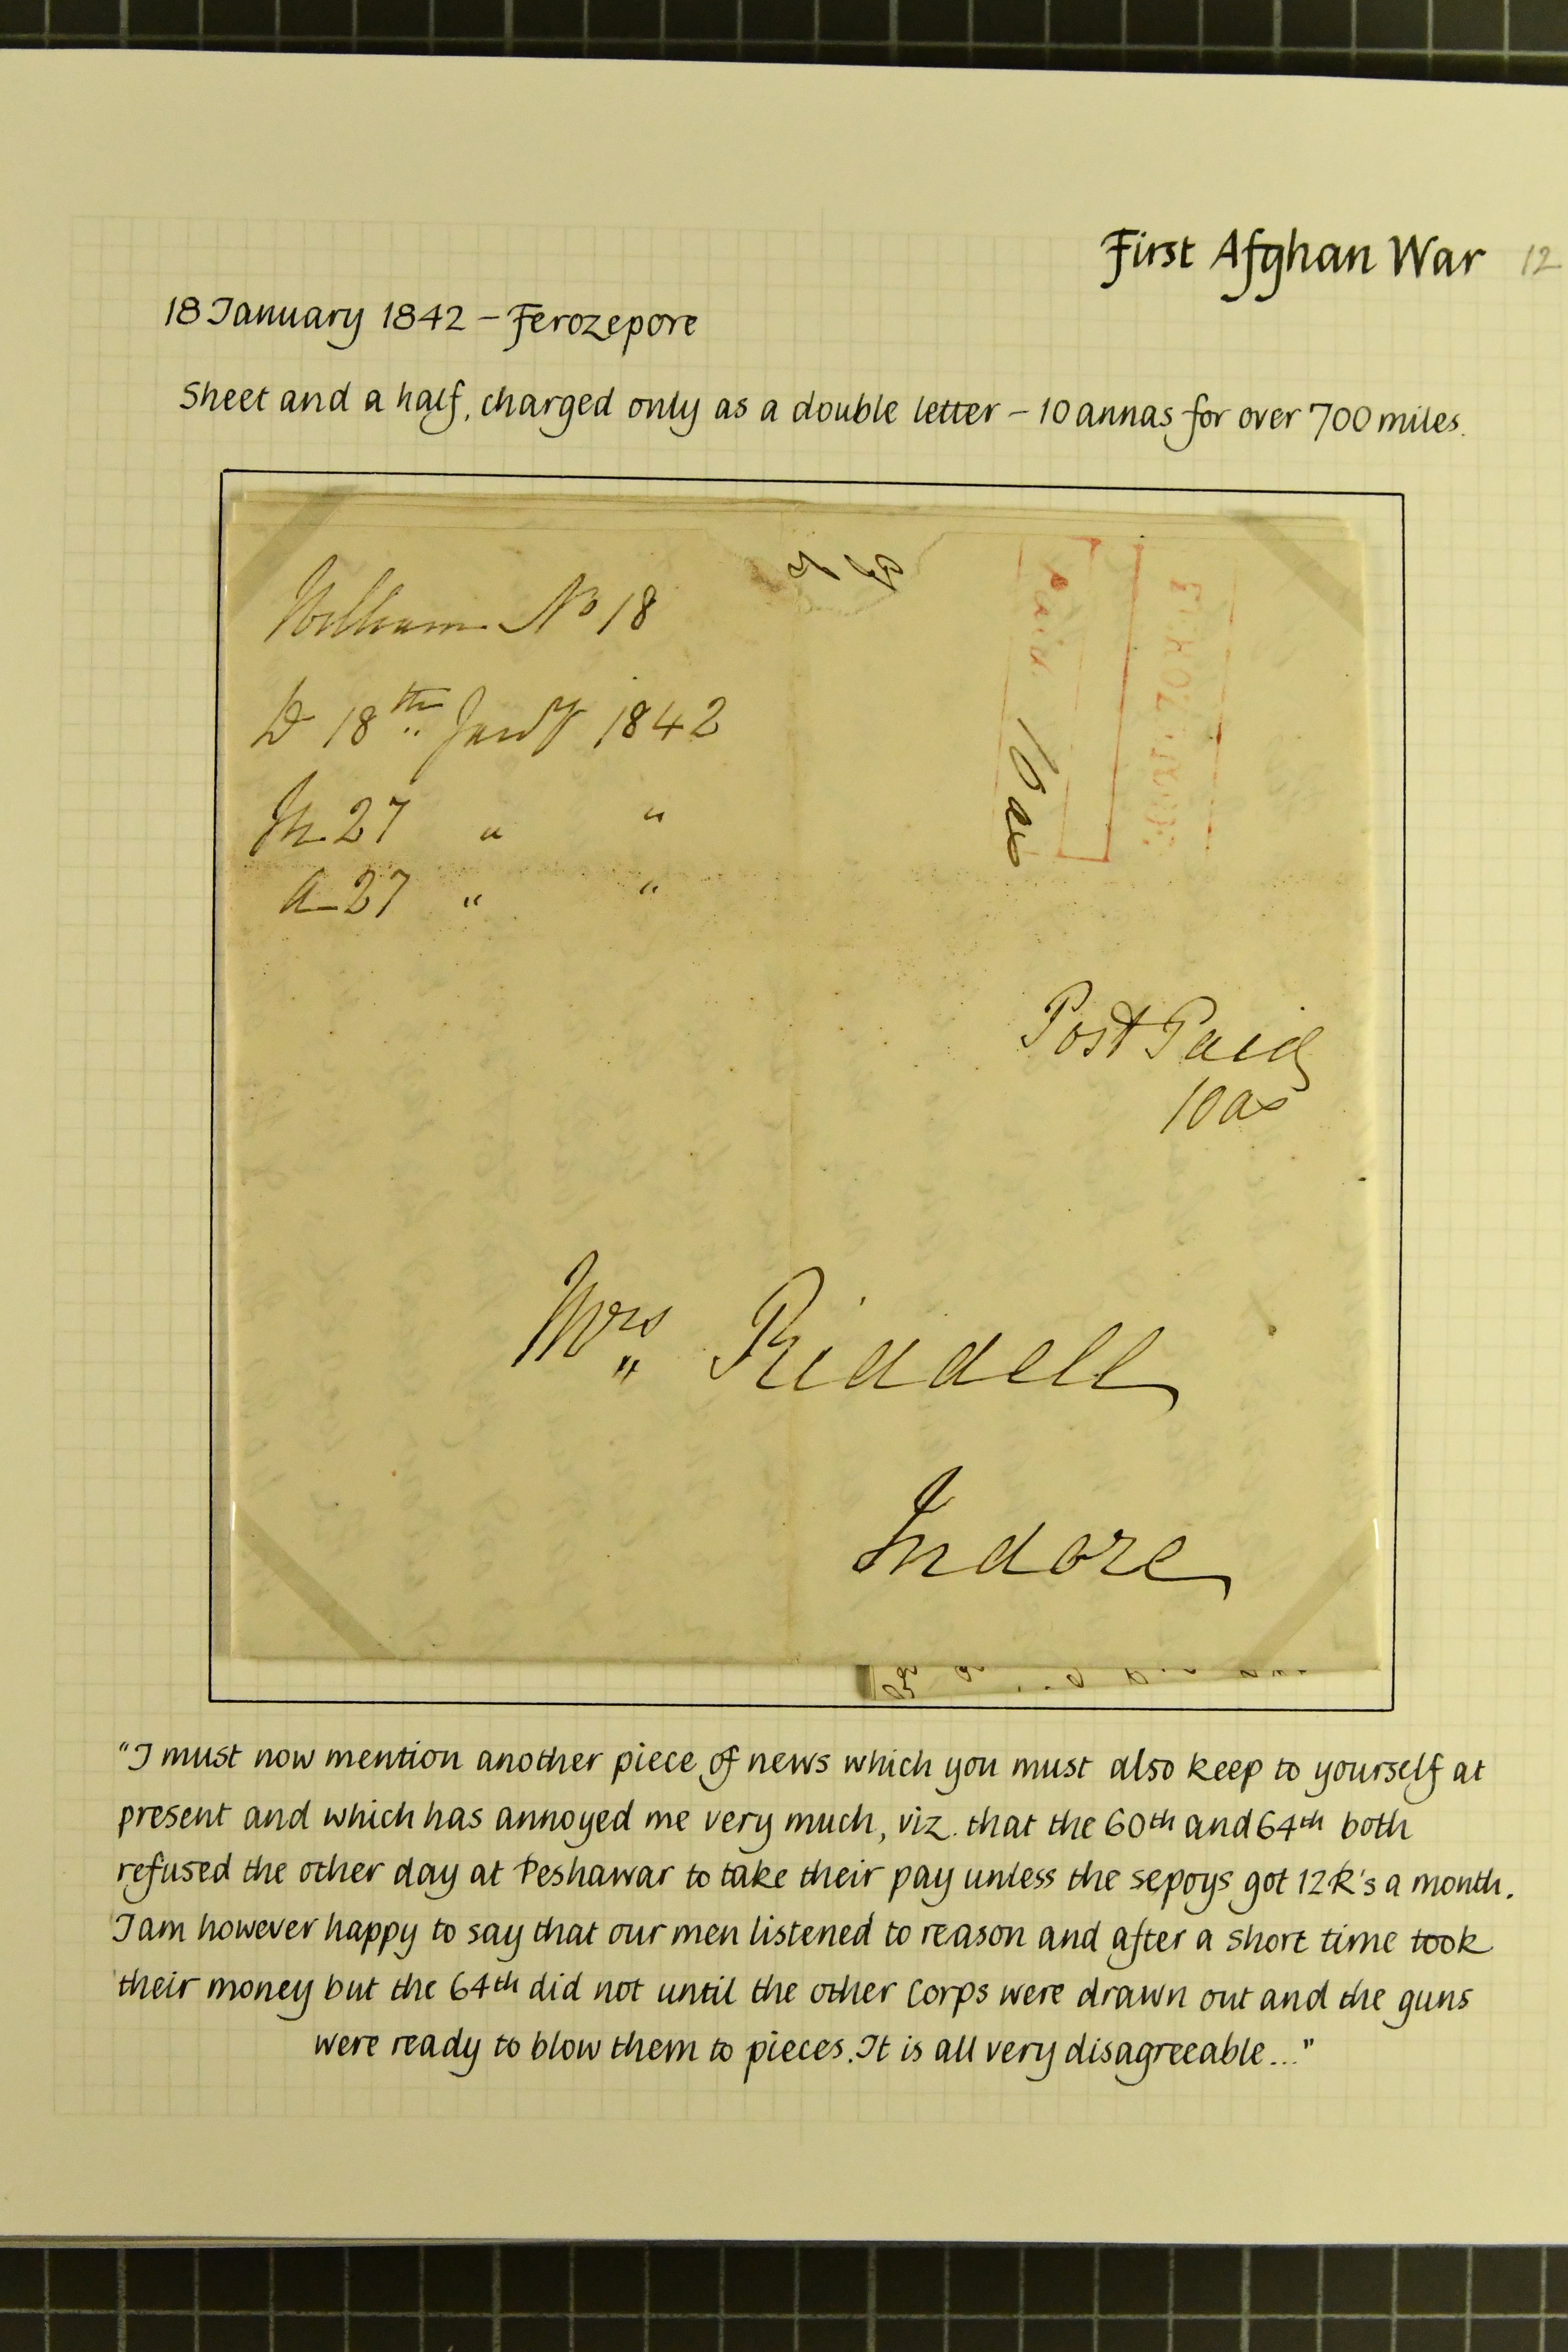 First Afghan War 12
18 January 1842 – Ferozepore
Sheet and a half, charged only as a double letter – 10 annas for over 700 miles.
William No 18
D 18th Jany 1842
27 " "
A 27 " "
Paid
10 as
Post Paid
10 as
Mrs Riddell
Indore
"I must now mention another piece of news which you must also keep to yourself at
present and which has annoyed me very much, viz. that the 60th and 64th both
refused the other day at Peshawar to take their pay unless the sepoys got 12 R's a month.
I am however happy to say that our men listened to reason and after a short time took
their money but the 64th did not until the other Corps were drawn out and the guns
were ready to blow them to pieces. It is all very disagreeable..."